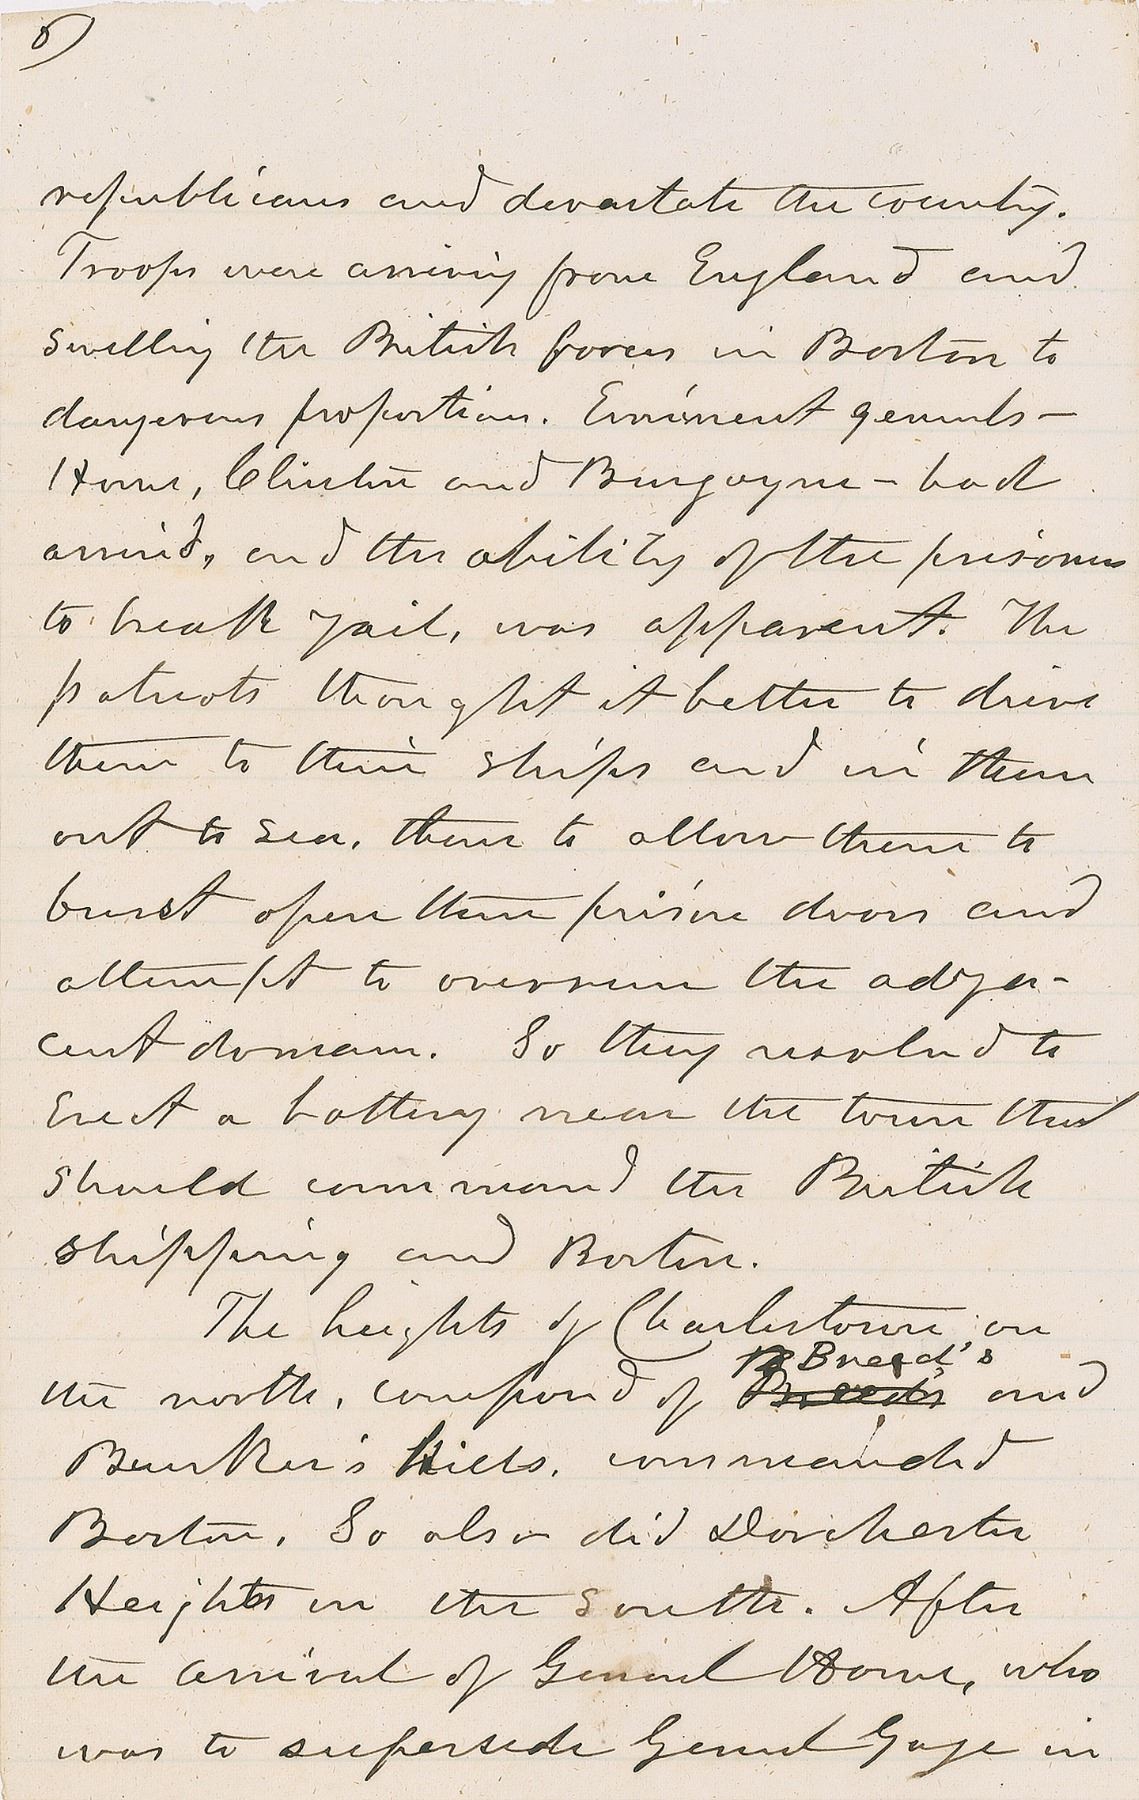 8)
republicans and devastate the country.
Troops were arriving from England and
swelling the British forces in Boston to
dangerous proportions. Eminent generals—
Howe, Clinton and Burgoyne—had
arrived, and the ability of the prisoners
to break jail, was apparent. The
patriots thought it better to drive
them to their ships and in them
out to sea, than to allow them to
burst open their prison doors and
attempt to overrun the adja-
cent domain. So they resolved to
erect a battery near the town that
should command the British
shipping and Boston.
The heights of Charlestown on
Breed's
the north, composed of Breed's and
Bunker's Hills, commanded
Boston. So also did Dorchester
Heights on the south. After
the arrival of General Howe, who
was to supersede General Gage in